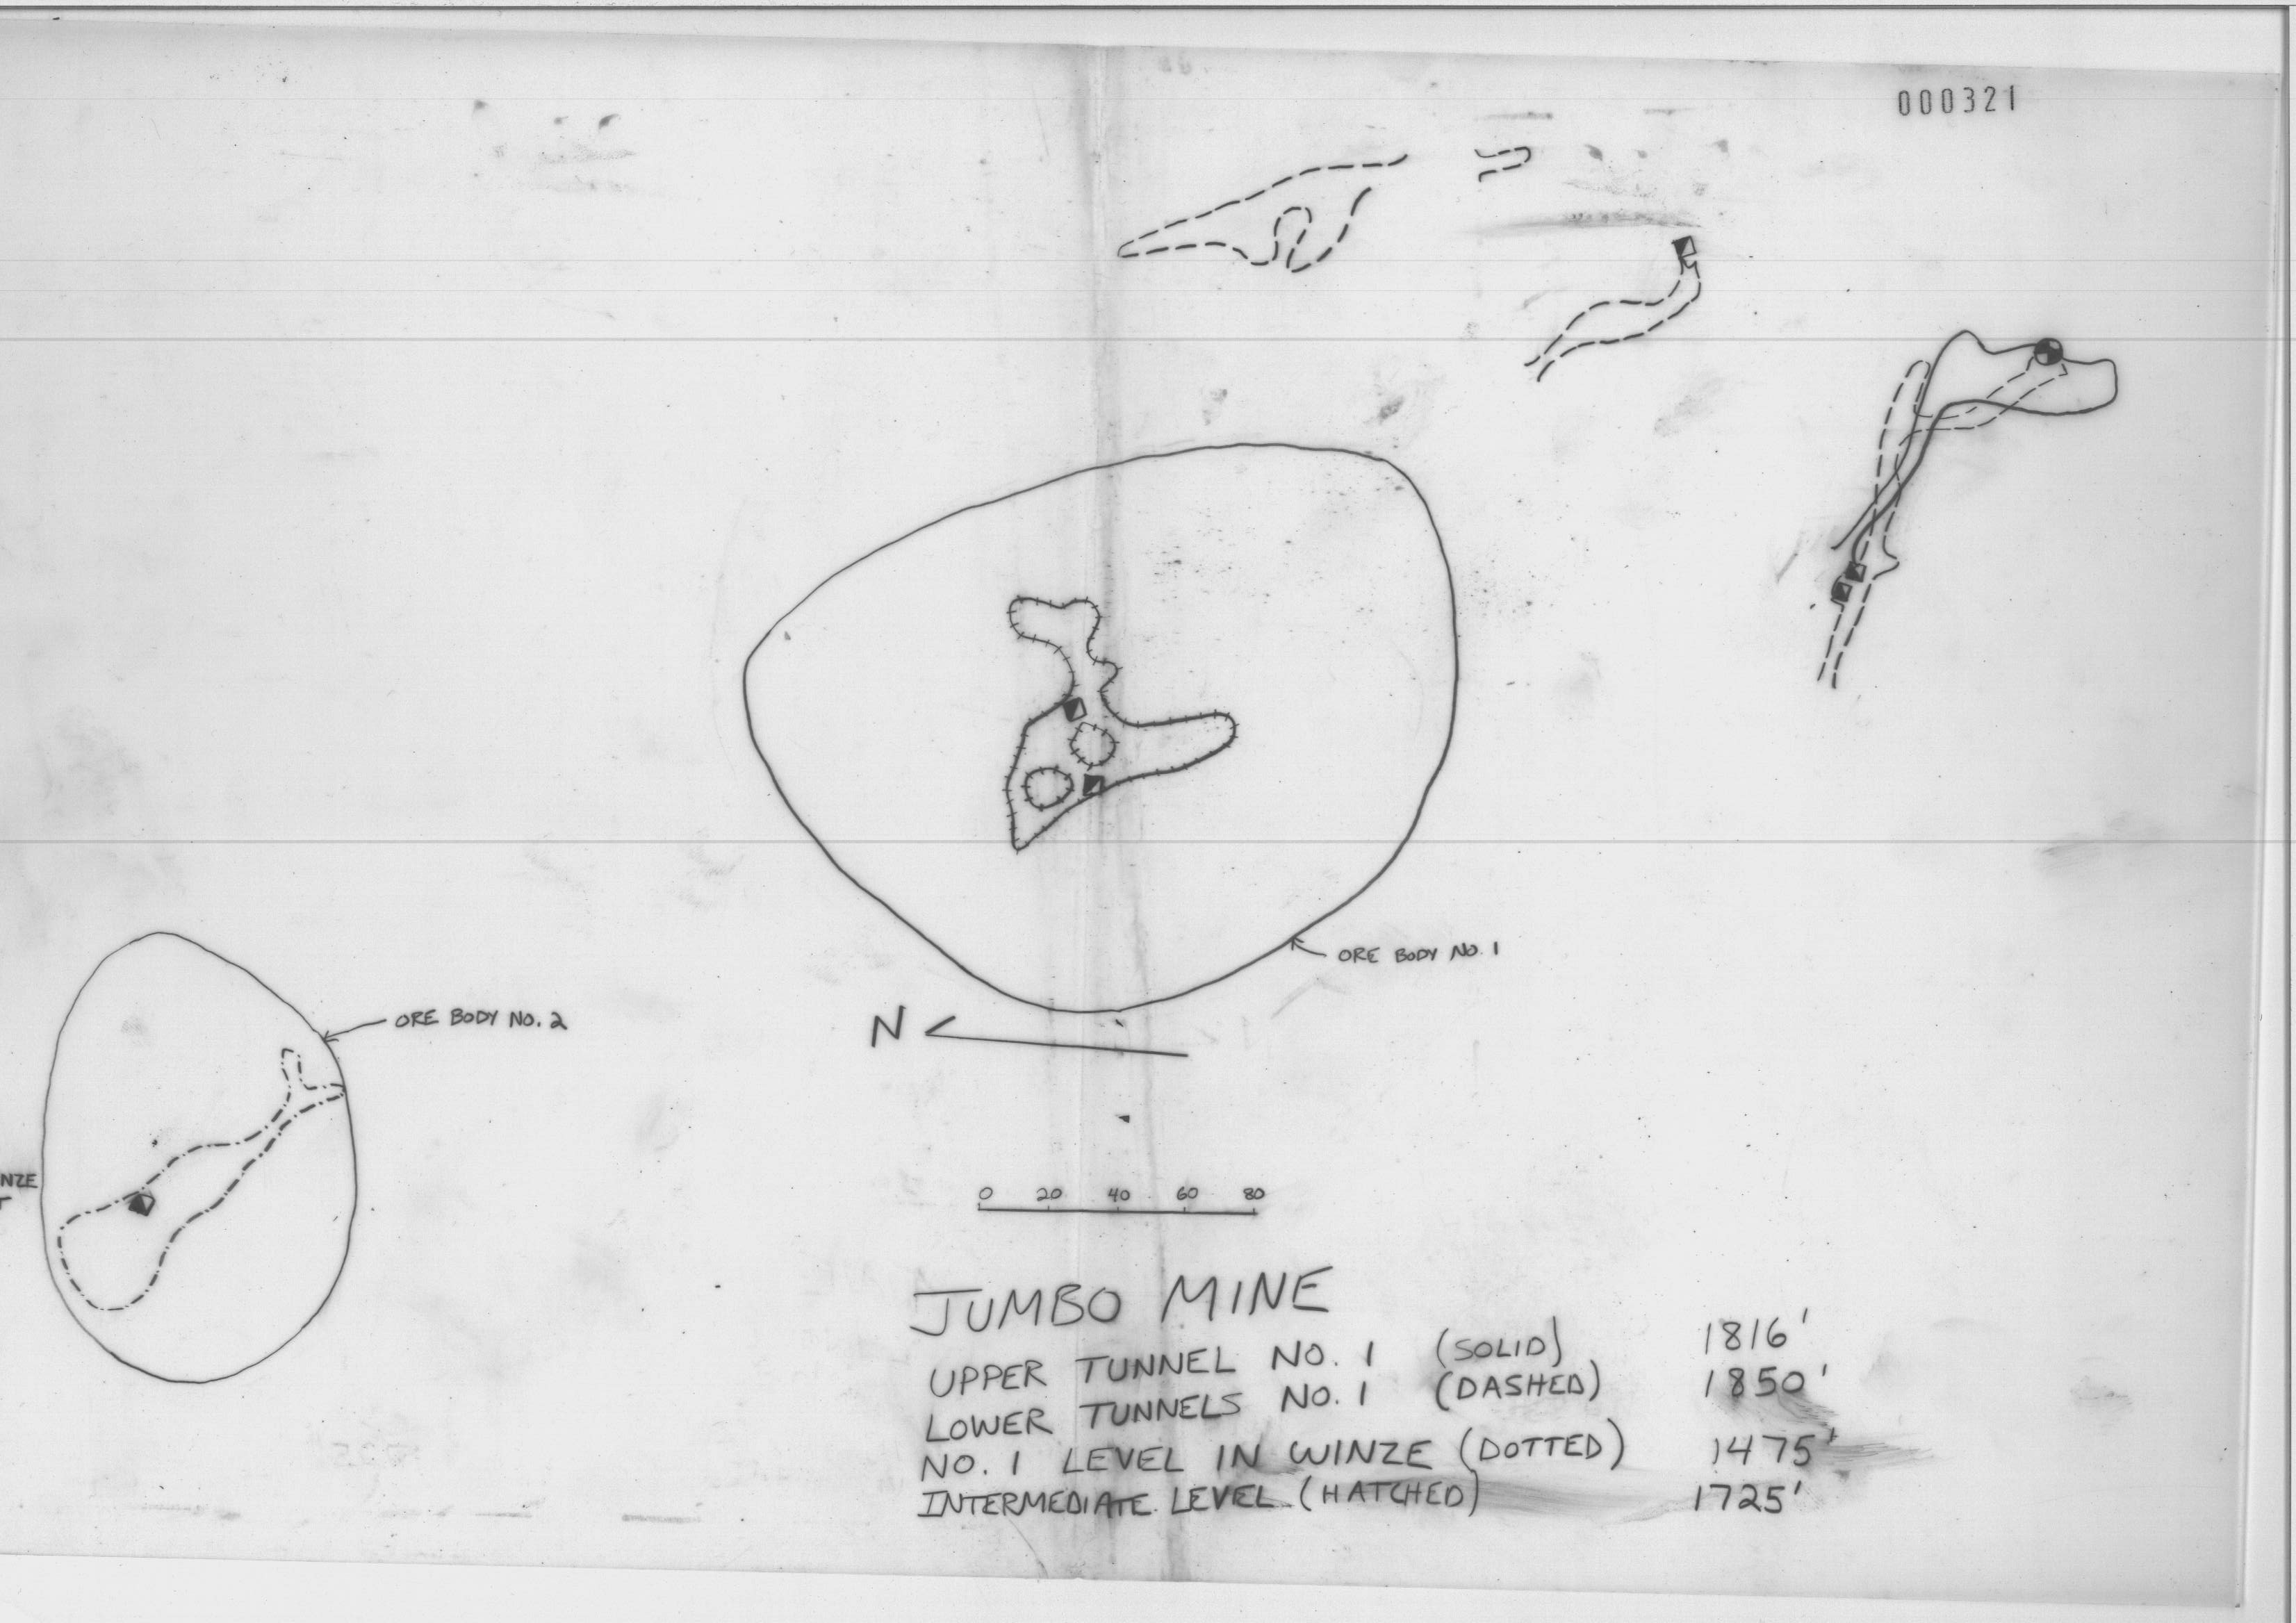 000321
ORE BODY NO. 1
N
ORE BODY NO. 2
NZE
0 20 40 60 80
JUMBO MINE
UPPER TUNNEL NO. 1 (SOLID) 1816'
LOWER TUNNELS NO. 1 (DASHED) 1850'
NO. 1 LEVEL IN WINZE (DOTTED) 1475'
INTERMEDIATE LEVEL (HATCHED) 1725'